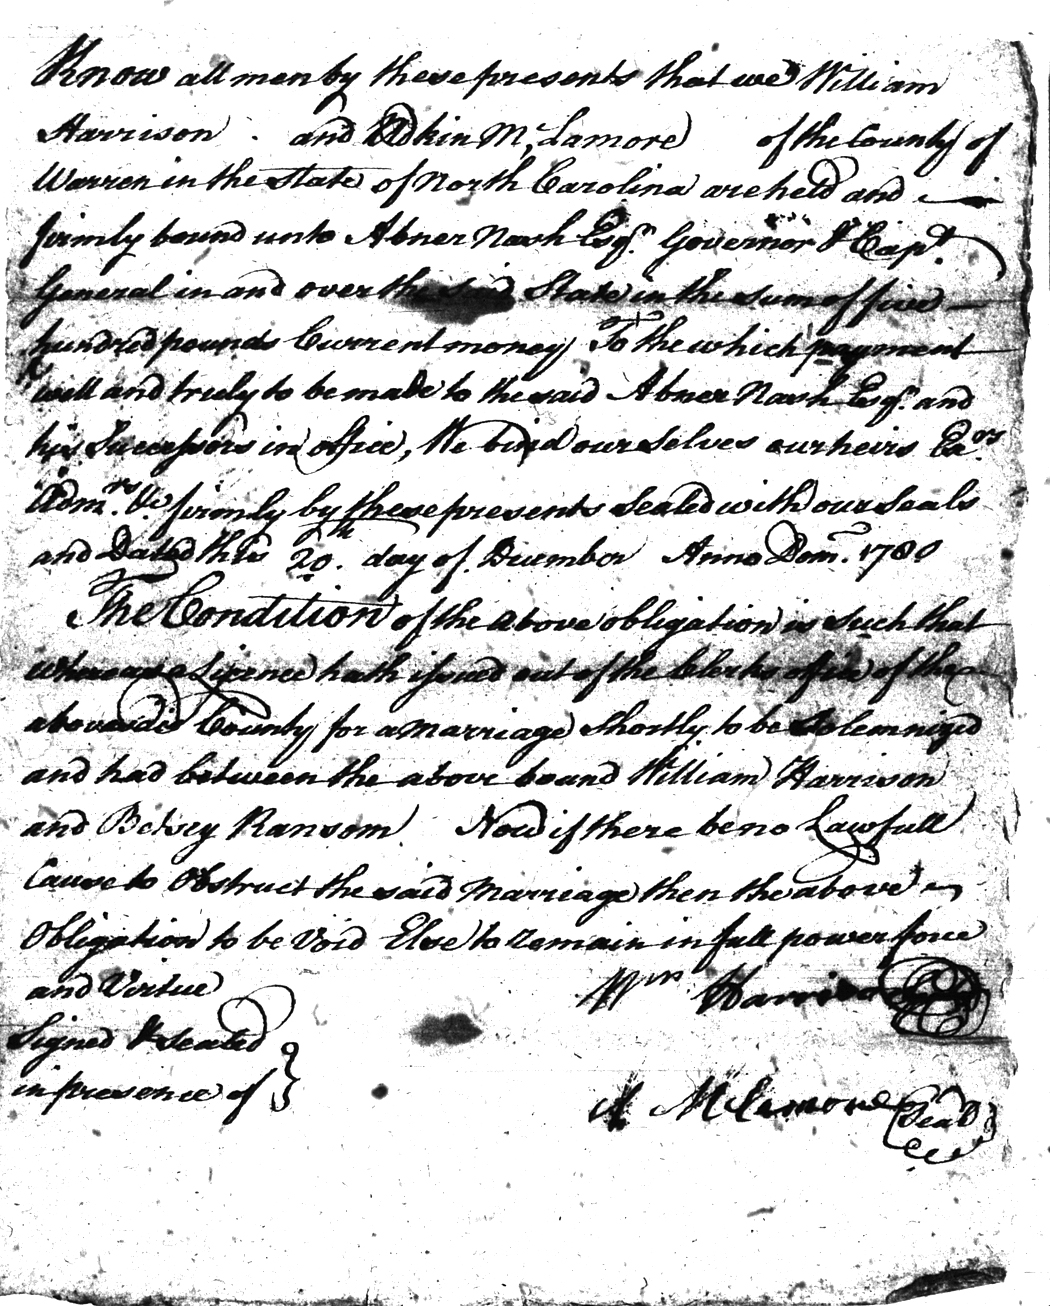 Know all men by these presents that we William
Harrison . and Adkin McLamore of the County of
Warren in the State of North Carolina are held and
firmly bound unto Abner Nash Esqr. Governor & Capt.
General in and over the said State in the sum of five
hundred pounds Current money To the which payment
well and truly to be made to the said Abner Nash Esqr. and
his Successors in office, We bind our selves our heirs Exrs.
Admrs. &c firmly by these presents Sealed with our Seals
and Dated this 20th. day of December Anno Dom. 1780
The Condition of the above obligation is Such that
whereas a Licence hath issued out of the Clerks office of the
abovesaid County for a marriage Shortly to be Solemnized
and had between the above bound William Harrison
and Betsey Ransom Now if there be no Lawfull
Cause to Obstruct the said Marriage then the above
Obligation to be Void Else to remain in full power force
and Virtue
Wm Harrison
Signed & sealed
in presence of }
A McLamore Seal